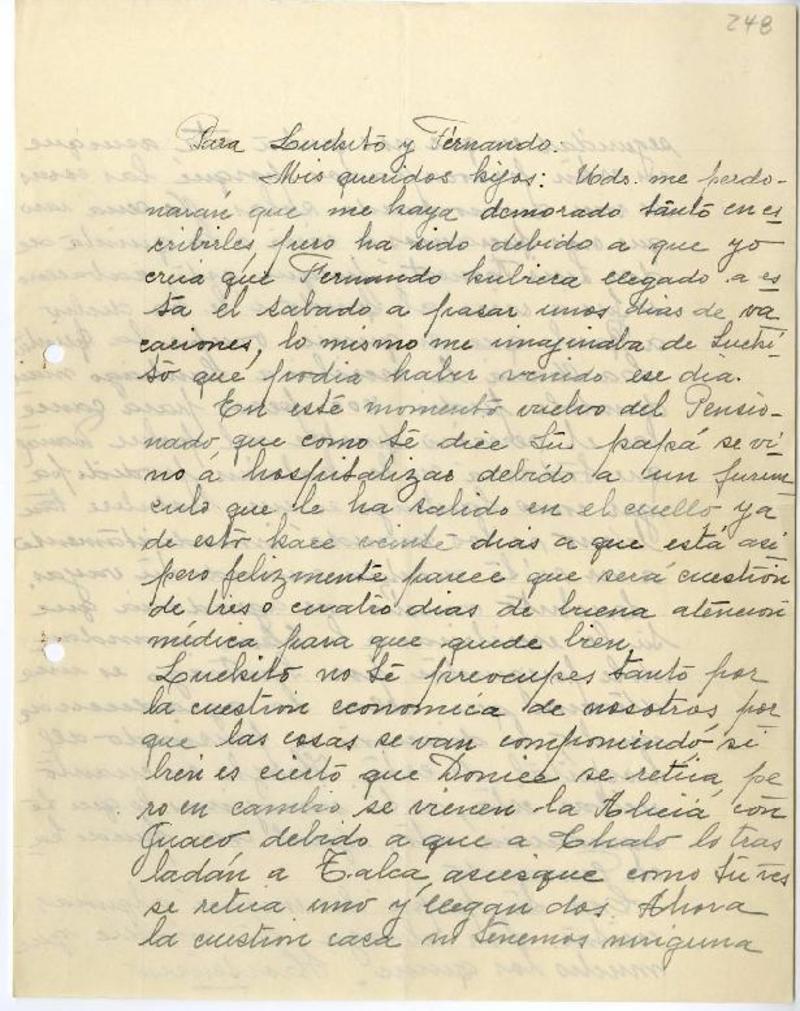 248
Para Luchito y Fernando:
Mis queridos hijos: Uds. me perdo-
narán que me haya demorado tanto en es
cribirles pero ha sido debido a que yo
creia que Fernando hubiera llegado a es
ta el sabado a pasar unos dias de va
caciones, lo mismo me imajinaba de Luchi-
to que podia haber venido ese dia.
En este momento vuelvo del Pensio-
nado que como te dice tu papá se vi
no á hospitalizar debido a un furun
culo que le ha salido en el cuello ya
de esto hace veinte dias a que está asi
pero felizmente parece que será cuestión
de tres o cuatro dias de buena atencion
médica para que quede bien.
Luchito no te preocupes tanto por
la cuestion economica de nosotros, por
que las cosas se van componindo, si
bien es cierto que se retira, pe
ro en cambio se vienen la Alicia con
debido a que a Chalo lo tras
ladán a Talca, asiesque como tu ves
se retira uno y llegan dos. Ahora
la cuestion casa no tenemos ninguna